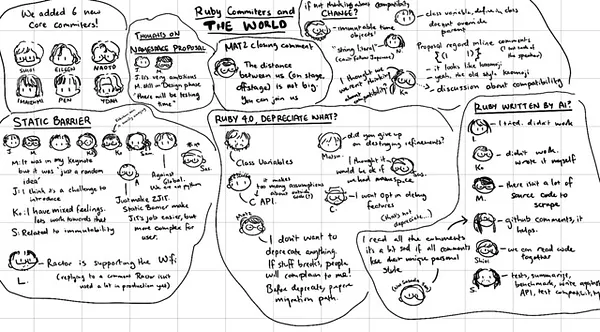 We added 6 new
Core commiters!
SHIOI
EILEEN
NAOTO
IMAIZUMI
PEN
YDAH
THOUGHTS ON
NAMESPACE PROPOSAL
J
M
J: it's very ambitious
M: still in "Design phase
"there will be testing
time"
Ruby Commiters and
THE WORLD
MATZ closing comment
The distance
between us (on stage,
offstage) is not big.
You can join us
if not thinking about compatibility
CHANGE?
"immutable time
objects!"
"String literal"
I thought we
weren't thinking
about compatibility
Ko
class variable, define in class
doesn't override
parent
Proposal regard inline comments
it looks like kaomoji
yeah, the old style kaomoji
discussion about compatibility
STATIC BARRIER
J
M
Ko
Sam
S
M: It was in my keynote
but it was "just a random
idea"
J: I think it's a challenge to
introduce
Ko: I have mixed feelings.
less work towards that
S: Related to immutability
A
Against
Global.
We are not python
Just make ZJIT.
Static Barrier make
Jit's job easier, but
more complex for
user.
Ractor is supporting the Wifi
L.
(replying to a comment Ractor isn't
used a lot in production yet)
RUBY 4.0, DEPRECATE WHAT?
Class Variables
it makes
too many assumptions
C API.
did you give up
on destroying refinements?
Matsu.
I thought it
would be ok if
we had namespace
I want Opt in debug
features
(that's not
deprecate...)
Matz
I don't want to
deprecate anything.
If stuff breaks, people
will complain to me!
Before deprecate, prepare
migration path.
RUBY WRITTEN BY AI?
I tried. didn't work
L.
didn't work.
wrote it myself
K.
there isn't a lot of
source code to
scrape
M.
github comments, it
helps.
we can read code
together
Shioi
tests, summarise,
benchmark, write against
API, test compatibility
S.
I read all the comments
it's a bit sad if all comments
lose their unique personal
style